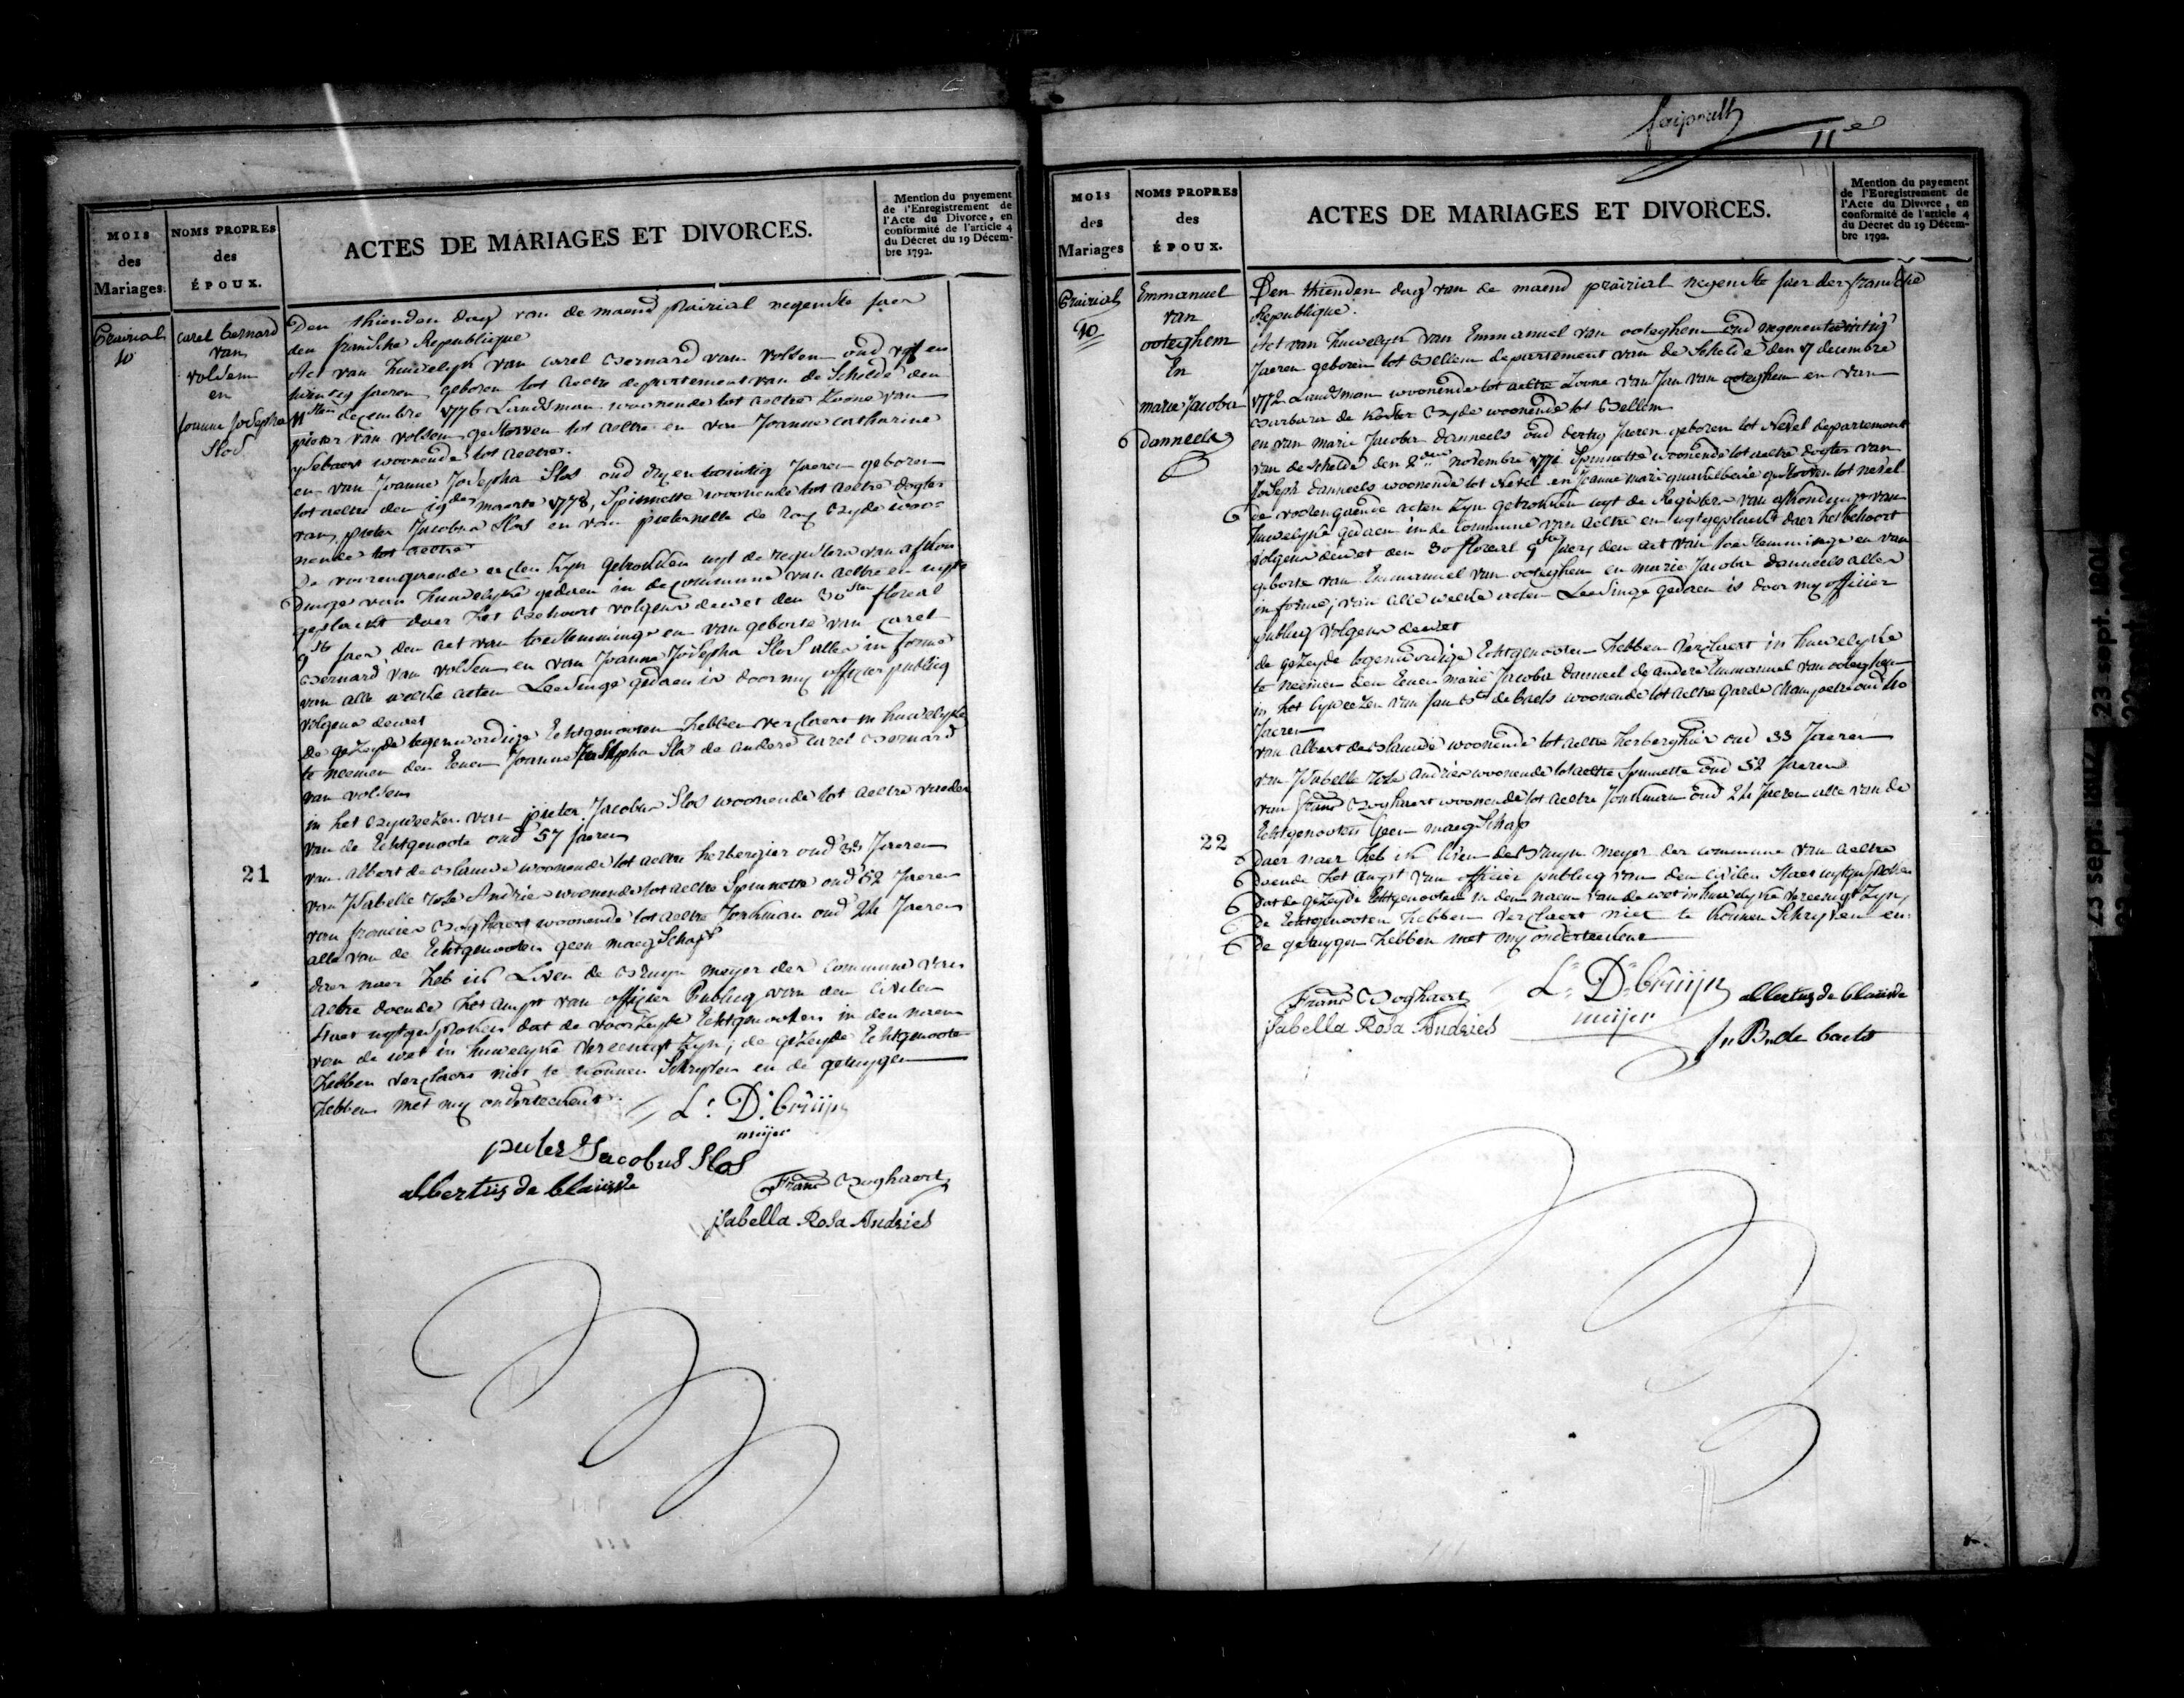 MOIS
des
Mariages.
NOMS PROPRES
des
ÉPOUX.
ACTES DE MARIAGES ET DIVORCES.
Mention du payement
de l'Enregistrement de
l'Acte du Divorce, en
conformité de l'article 4
du Décret du 19 Décem-
bre 1792.
Prairial
10
carel bernard
van
volsem
en
Joanne Josepha
Slos
Den thienden dag van de maend prairial negenste jaer
der fransche Republique
Act van huwelyk van carel Bernard van volsem oud vyf en
twintig jaeren geboren tot aeltre departement van de Schelde den
11sten decembre 1776 Landsman woonende tot aeltre Zoone van
pieter van volsem gestorven tot aeltre en van Joanne catharine
ysebaert woonende tot aeltre.
en van Joanne Josepha Slos oud dry en twintig Jaeren geboren
tot aeltre den maerte 1778, Spinnette woonende tot aeltre dogter
van pieter Jacobus Slos en van pieternelle de Bryde woo-
nende tot aeltre
De voorengaende acten Zyn getrokken uyt de registers van afkon
dinge van huwelyke gedaen in de commune van aeltre en uytt
geplackt daer het Behoort volgens dewet den 30sten floreal
9ste jaer den act van toestemminge en van geborte van carel
Bernard van volsem en van Joanne Josepha Slos alles in forme
van alle welke acten Leesinge gedaen is door my officier publicq
volgens dewet
De gezeyde tegenwordige Echtgenooten hebben verclaert in huwelyke
te neemen den Eenen Joanne Josepha Slos de andere carel Bernard
van volsem
in het Byweezen van pieter Jacobus Slos woonende tot aeltre vaeder
van de Echtgenoote oud 57 jaeren
21
van Albert de Blauwe woonende tot aeltre herbergier oud 33 Jaeren
van Isabelle Roze Andries woonende tot aeltre Spinnette oud 52 Jaeren
van francies Boghaert woonende tot aeltre Jonkman oud 24 Jaeren
alle van de Echtgenooten geen maegschap
daer naer heb ick Liven de Bruyn meyer der commune van
aeltre doende het ampt van officier Publicq van den Civilen
staet uytgesproken dat de voorzeyde Echtgenooten in den naem
van de wet in huwelyke vereenigt Zyn; de gezeyde Echtgenoote
hebben verclaert niet te konnen Schryven en de getuygen
hebben met my onderteekent.
Ls. D. bruijn
meijer
pieter Jacobus Slos
albertus de blauwe
Frans Boghaert
isabella Rosa Andries
faipoult
11e
MOIS
des
Mariages
NOMS PROPRES
des
ÉPOUX.
ACTES DE MARIAGES ET DIVORCES.
Mention du payement
de l'Enregistrement de
l'Acte du Divorce, en
conformité de l'article 4
du Décret du 19 Décem-
bre 1792.
Prairial
10
Emmanuel
van
ooteghem
En
marie Jacoba
danneels
Den thienden dag van de maend prairial negenste jaer der fransche
Republique.
Act van huwelyk van Emmanuel van ooteghem oud negenentwintig
Jaeren geboren tot Bellem departement van de Schelde den 17 decembre
1772 Landsman woonende tot aeltre Zoone van Jan van ooteghem en van
Barbara de Koster Byde woonende tot Bellem
en van marie Jacoba danneels oud dertig Jaeren geboren tot Nevel departement
van de schelde den 2den novembre 1771 Spinnette woonende tot aeltre dogter van
Joseph danneels woonende tot Nevel en Joanne marie gestorven tot nevel
de voorengaende acten Zyn getrokken uyt de Registers van afkondinge van
huwelyke gedaen in de commune van aeltre en uytgeplackt daer het behoort
volgens dewet den 30 floreal 9ste jaer, den act van toestemminge en van
geborte van Emmanuel van ooteghem en marie Jacoba danneels alles
in forme; van alle welke acten Leesinge gedaen is door my officier
publicq volgens dewet
de gezeyde tegenwordige Echtgenooten hebben verclaert in huwelyke
te neemen den Eenen marie Jacoba danneel de andere Emmanuel van ooteghem
in het bywezen van Jan Bte de baets woonende tot aeltre garde champetre oud 40
Jaeren
van Albert de Blauwe woonende tot aeltre herberghier oud 33 Jaeren
van Isabelle Roze Andries woonende tot aeltre Spinnette oud 52 Jaeren
van frans Boghaert woonende tot aeltre Jonkman oud 24 Jaeren alle van de
Echtgenooten geen maegschap
22
daer naer heb ick liven de Bruyn meyer der commune van aeltre
doende het ampt van officier publicq van den civilen staet uytgesproken
dat de gezeyde Echtgenooten in den naem van de wet in huwelyke vereenigt Zyn,
de Echtgenooten hebben verclaert niet te konnen Schryven en
de getuygen hebben met my onderteekent
Frans Boghaert
isabella Rosa Andries
Ls. D. bruijn
meijer
albertus de blauwe
Jn Bn de baets
23 sept. 1802
23 sept. 1801